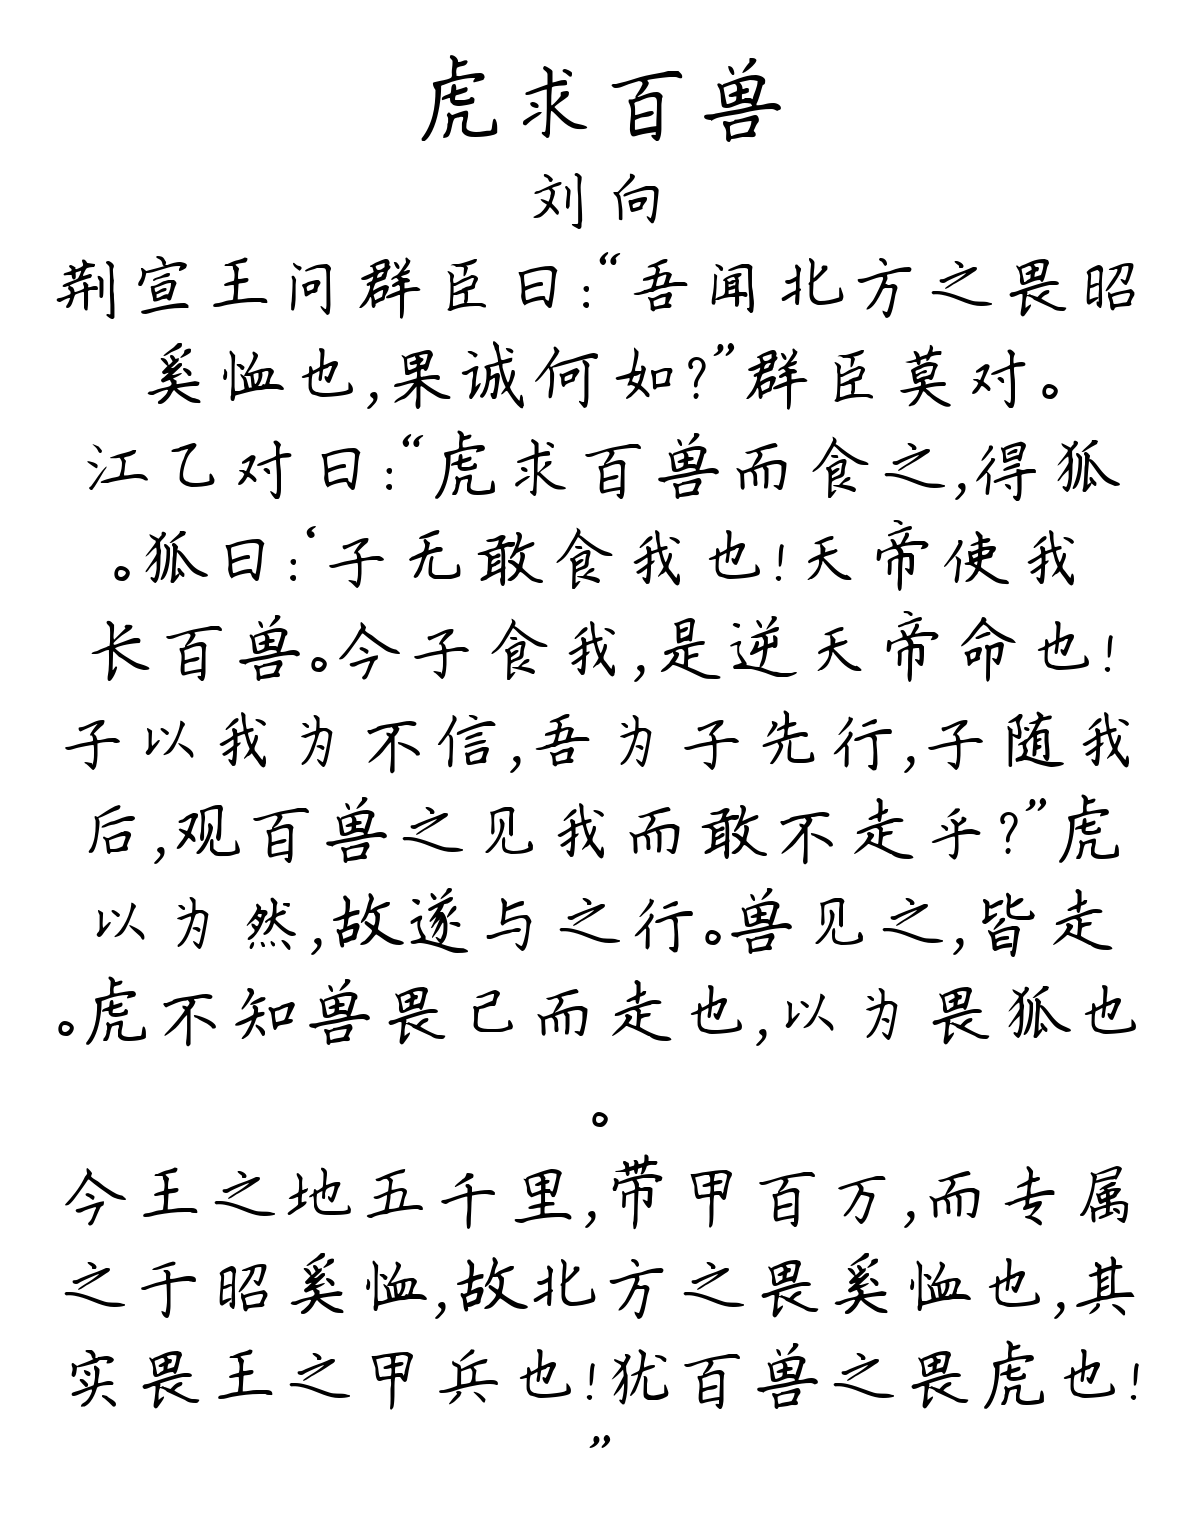 虎求百兽
刘向
荆宣王问群臣曰:“吾闻北方之畏昭
奚恤也,果诚何如?”群臣莫对。
江乙对曰:“虎求百兽而食之,得狐
。狐曰:‘子无敢食我也!天帝使我
长百兽。今子食我,是逆天帝命也!
子以我为不信,吾为子先行,子随我
后,观百兽之见我而敢不走乎?”虎
以为然,故遂与之行。兽见之,皆走
。虎不知兽畏己而走也,以为畏狐也
。
今王之地五千里,带甲百万,而专属
之于昭奚恤,故北方之畏奚恤也,其
实畏王之甲兵也!犹百兽之畏虎也!
”